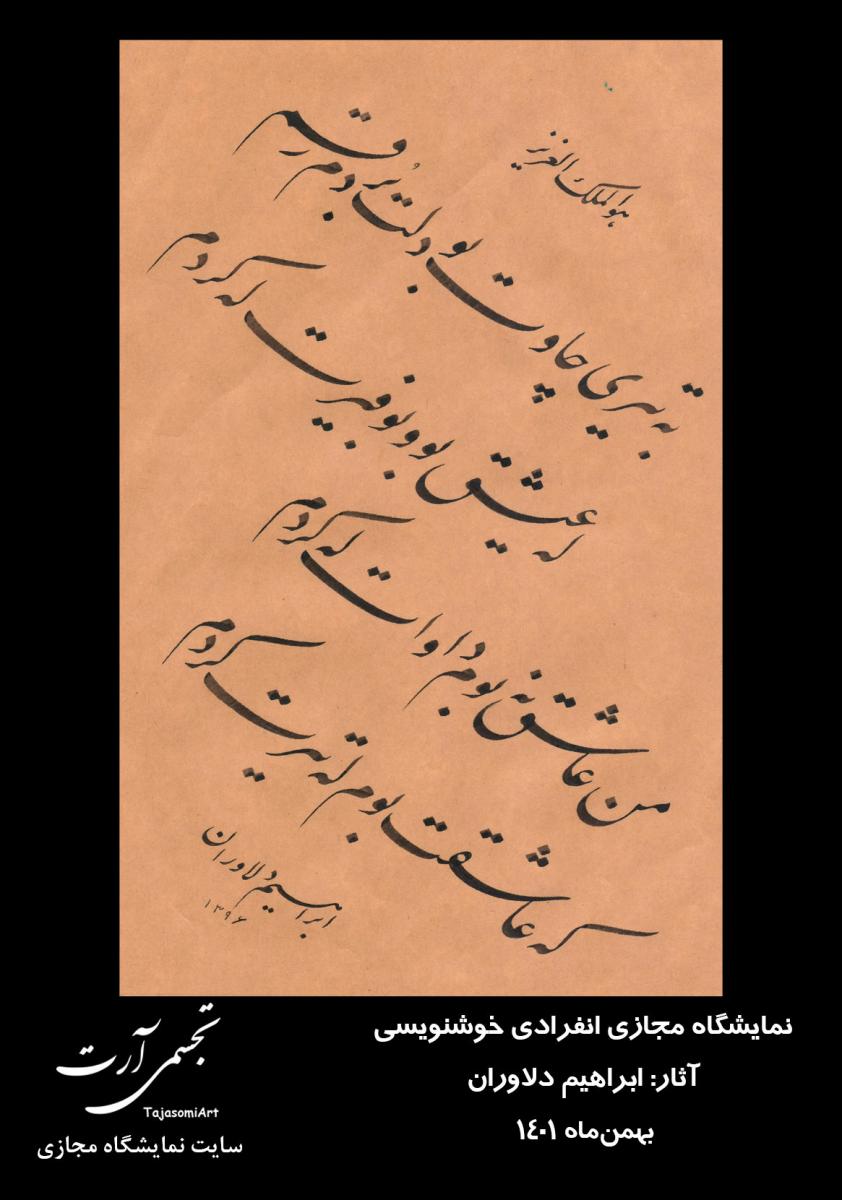 هوالملک العزیز
به تیری چاوت بو دلت
عیشق بو و بو فیرت له کردم
من عاشق نه بوم داوات له کردم
که عاشقت بوم کردم
ابراهیم دلاوران
۱۳۹۶
نمایشگاه مجازی انفرادی خوشنویسی
آثار: ابراهیم دلاوران
بهمن‌ماه ۱٤۰۱
تجسمی آرت
TajasomiArt
سایت نمایشگاه مجازی